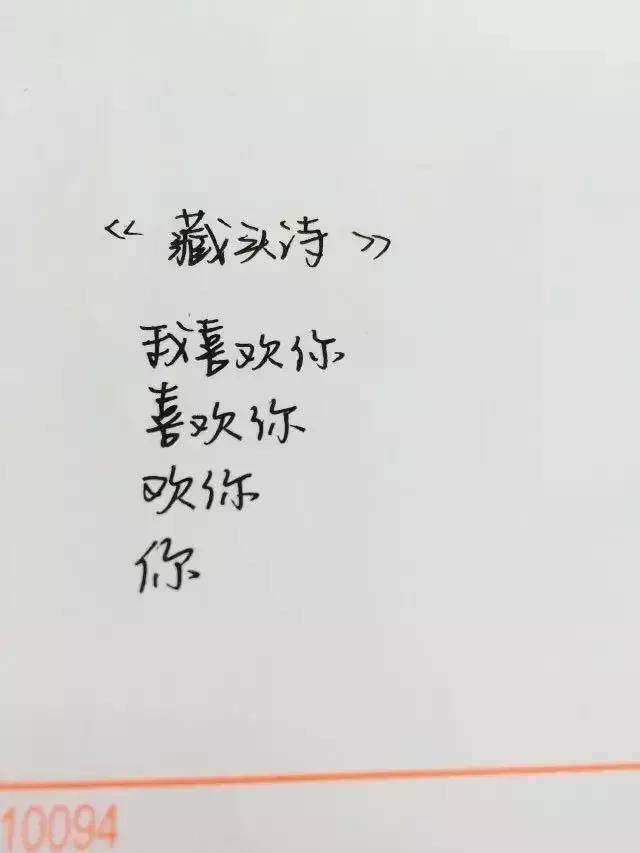 《藏头诗》
我喜欢你
喜欢你
欢你
你
10094